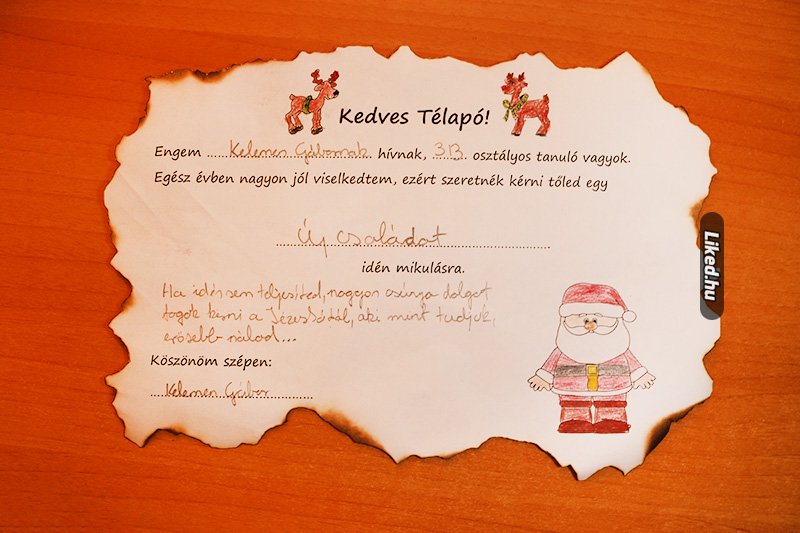 Kedves Télapó!
Engem Kelemen Gábornak hívnak, 3.B. osztályos tanuló vagyok.
Egész évben nagyon jól viselkedtem, ezért szeretnék kérni tőled egy
Új családot
idén mikulásra.
Ha idén sem teljesíted, nagyon csúnya dolgot
fogok kérni a Jézuskától, aki mint tudjuk,
erősebb nálad...
Köszönöm szépen:
Kelemen Gábor
Liked.hu